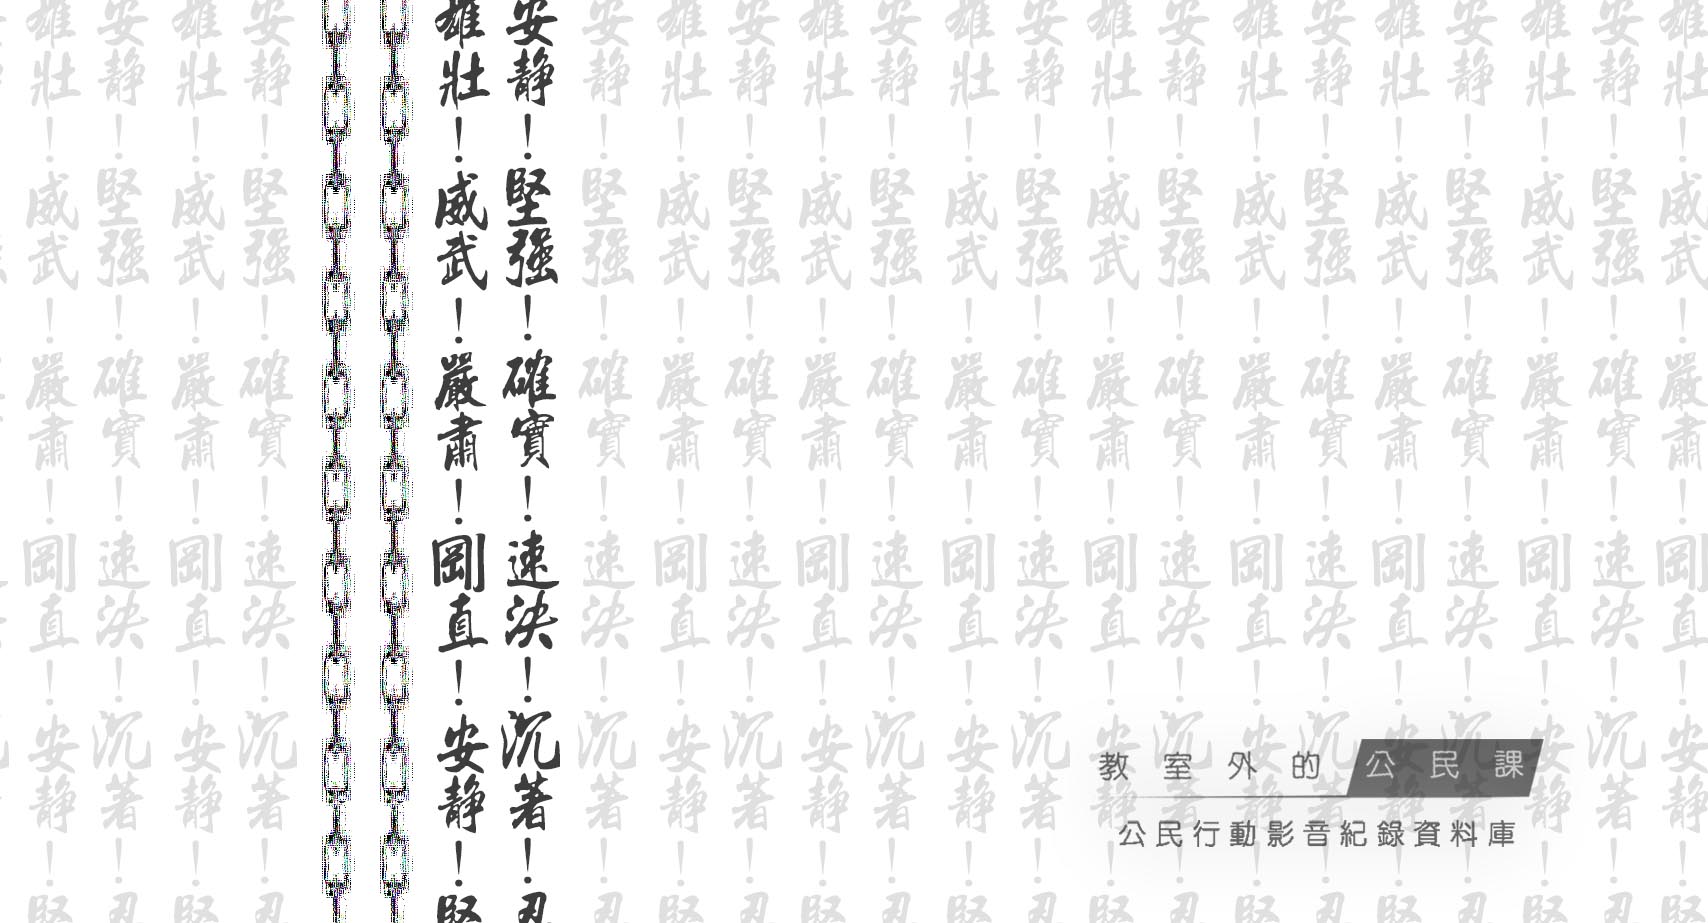 雄壯！威武！嚴肅！剛直！安靜！堅
安靜！堅強！確實！速決！沉著！忍
教室外的公民課
公民行動影音紀錄資料庫